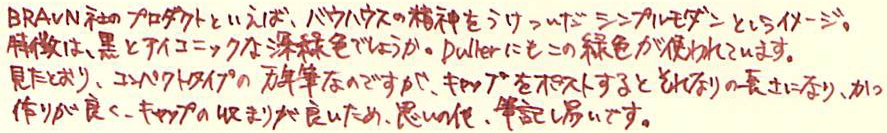 BRAUN社のプロダクトといえば、バウハウスの精神をうけついだシンプルモダンというイメージ。
特徴は、黒とアイコニックな深緑色でしょうか。Dullerにもこの緑色が使われています。
見たとおり、コンパクトタイプの万年筆なのですが、キャップをポストするとそれなりの長さになり、かつ
作りが良く、キャップの収まりが良いため、思いの他、筆記し易いです。